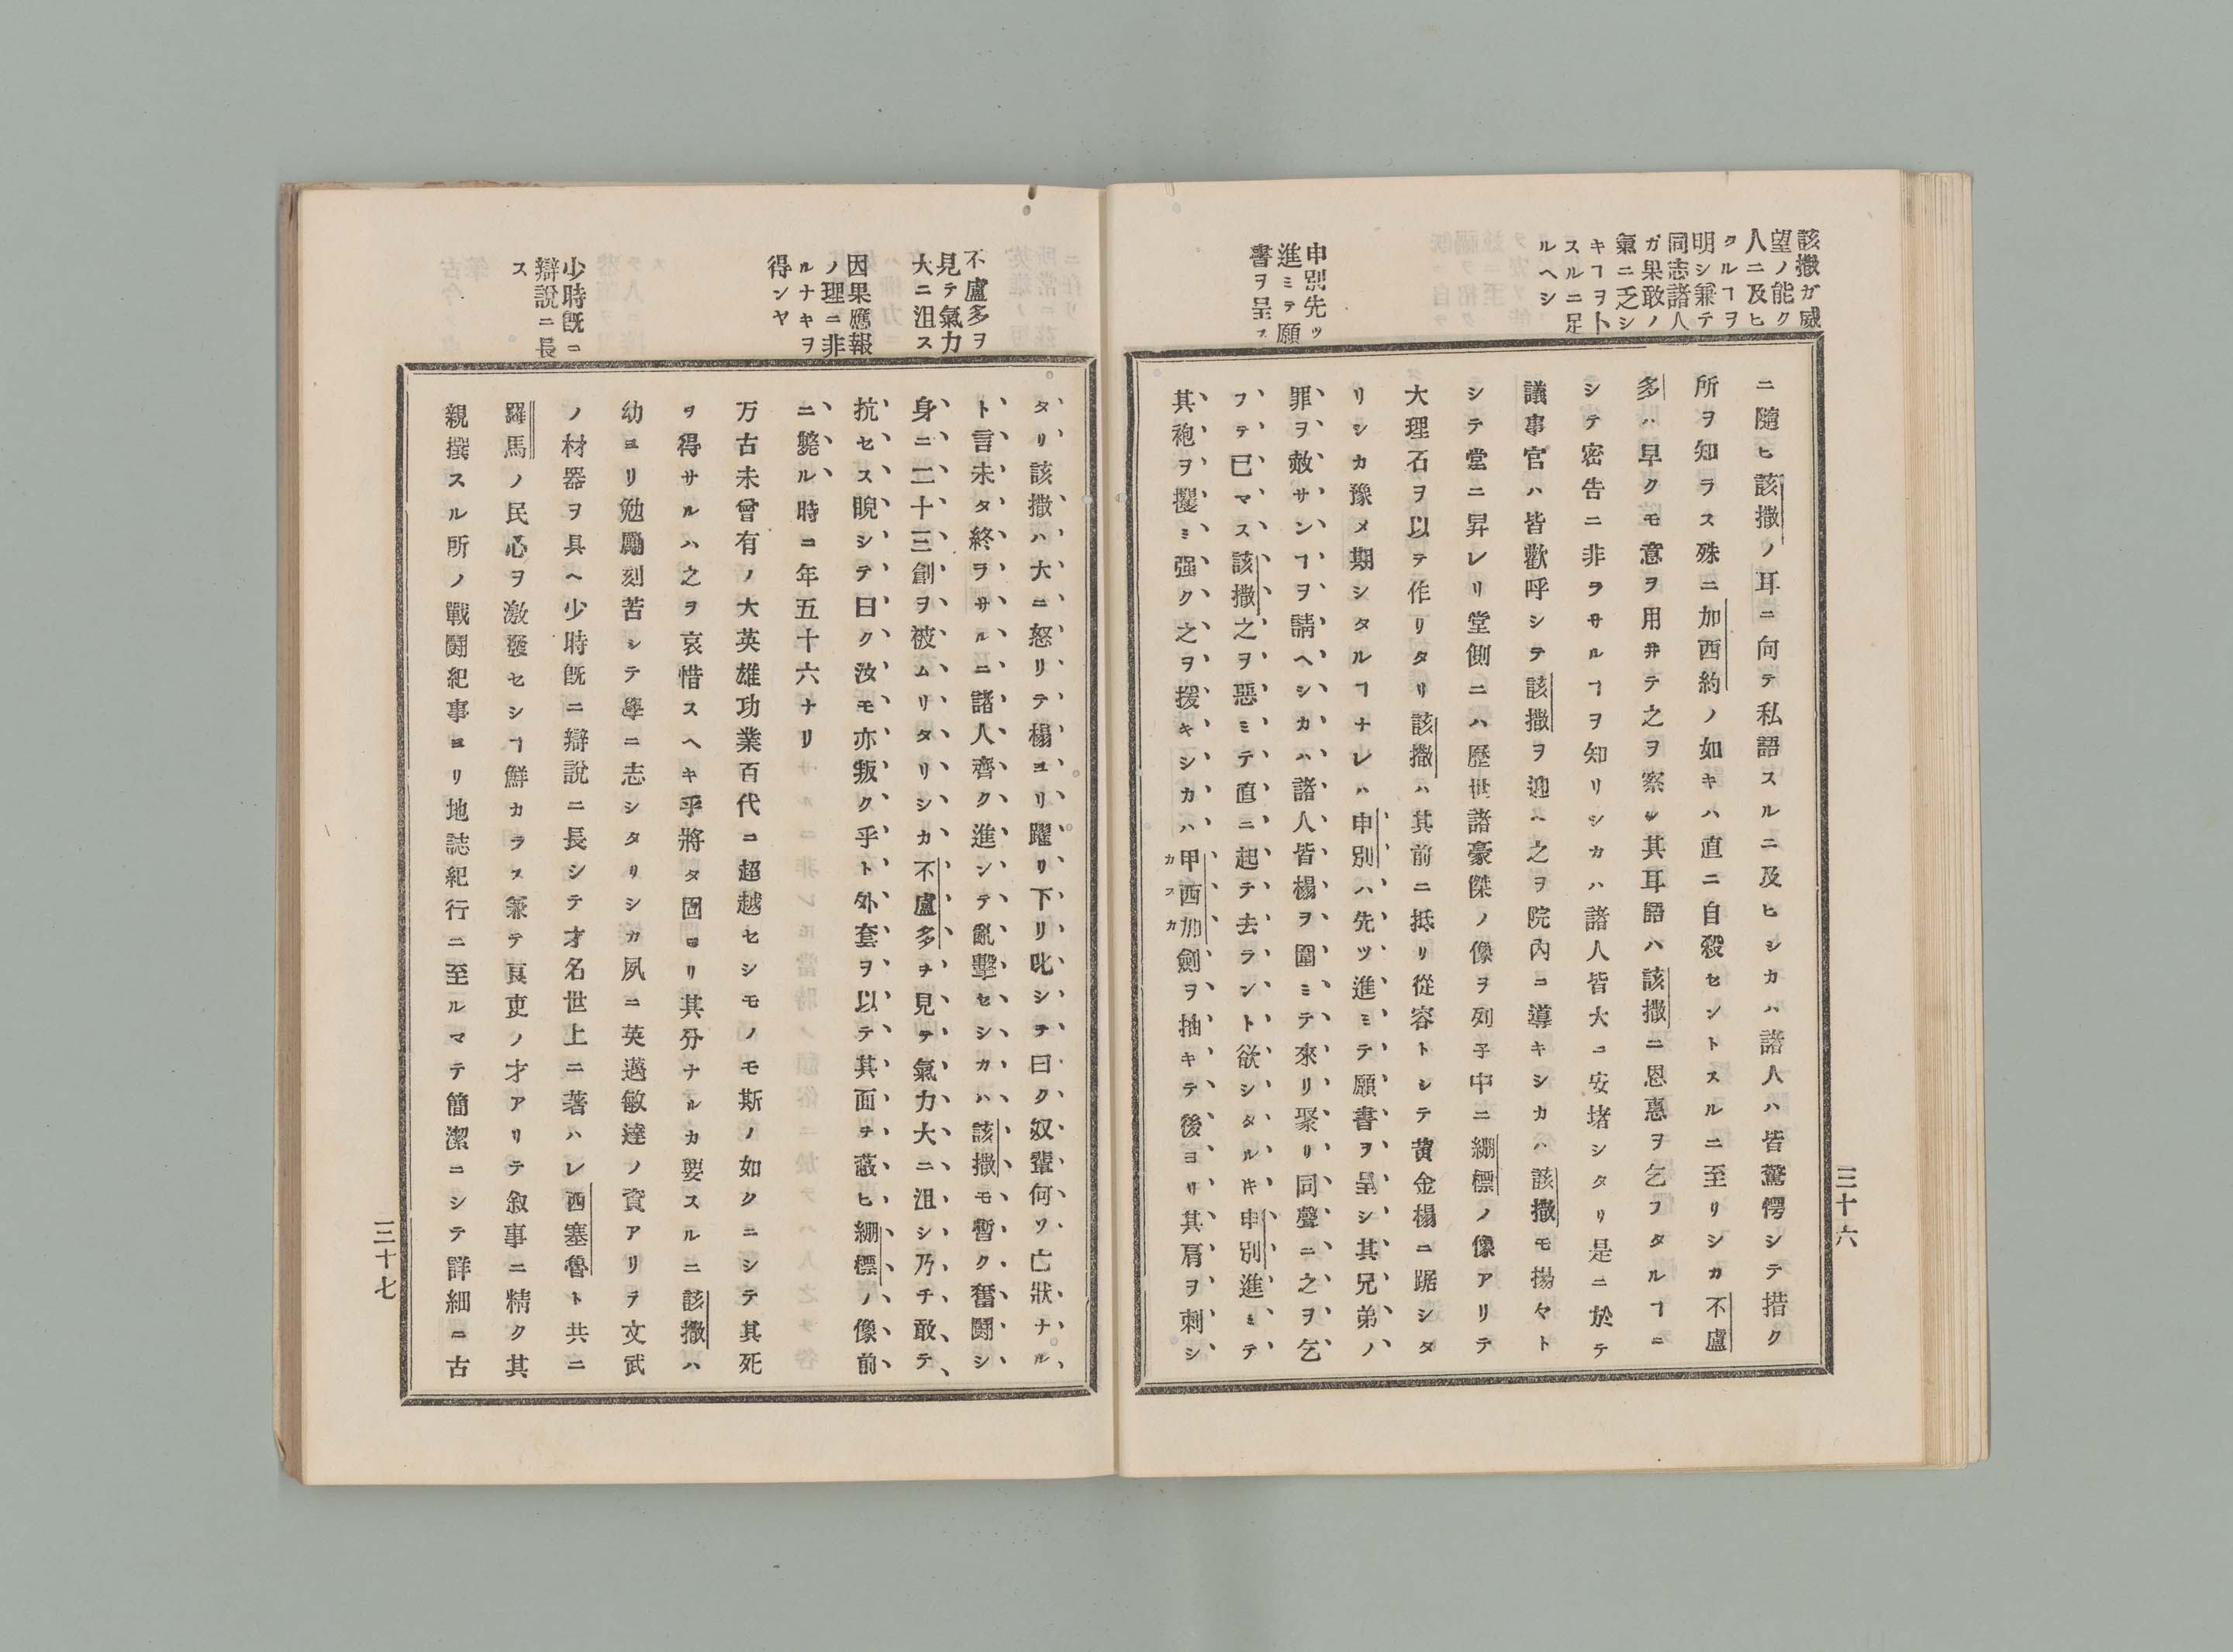 該撒ガ威
望ノ能ク
人ニ及ヒ
タルヿヲ
明シ兼テ
同志諸人
ガ果敢ノ
氣ニ乏シ
キヿヲト
スルニ足
ルヘシ
申別先ッ
進ミテ願
書ヲ呈ス
ニ隨ヒ該撒ノ耳ニ向テ私語スルニ及ヒシカハ諸人ハ皆驚愕シテ措ク
所ヲ知ラス殊ニ加西約ノ如キハ直ニ自殺セントスルニ至リシカ不盧
多ハ早クモ意ヲ用井テ之ヲ察シ其耳語ハ該撒ニ恩惠ヲ乞フタルヿニ
シテ密告ニ非ラサルヿヲ知リシカハ諸人皆大ニ安堵シタリ是ニ於テ
議事官ハ皆歡呼シテ該撒ヲ迎ヘ之ヲ院內ニ導キシカハ該撒モ揚々ト
シテ堂ニ昇レリ堂側ニハ歷世諸豪傑ノ像ヲ列子中ニ繃標ノ像アリテ
大理石ヲ以テ作リタリ該撒ハ其前ニ抵リ從容トシテ黃金榻ニ踞シタ
リシカ豫メ期シタルヿナレハ申別ハ先ツ進ミテ願書ヲ呈シ其兄弟ノ
罪ヲ赦サンヿヲ請ヘシカハ諸人皆榻ヲ圍ミテ來リ聚リ同聲ニ之ヲ乞
フテ已マス該撒之ヲ惡ミテ直ニ起テ去ラント欲シタルキ申別進ミテ
其袍ヲ攫ミ强ク之ヲ援キシカハ甲西加劍ヲ抽キテ後ヨリ其肩ヲ刺シ
カスカ
三十六
不盧多ヲ
見テ氣力
大ニ沮ス
因果應報
ノ理ニ非
ルナキヲ
得ンヤ
少時旣ニ
辯說ニ長
ス
タリ該撒ハ大ニ怒リテ榻ヨリ躍リ下リ叱シテ曰ク奴輩何ソ亡狀ナル
ト言未タ終ヲサルニ諸人齊ク進ンテ亂擊セシカハ該撒モ暫ク奮鬪シ
身ニ二十三創ヲ被ムリタリシカ不盧多ヲ見テ氣力大ニ沮シ乃チ敢テ
抗セス睨シテ曰ク汝モ亦叛ク乎ト外套ヲ以テ其面ヲ蔽ヒ繃標ノ像前
ニ斃ル時ニ年五十六ナリ
万古未曾有ノ大英雄功業百代ニ超越セシモノモ斯ノ如クニシテ其死
ヲ得サルハ之ヲ哀惜スヘキ乎將タ固ヨリ其分ナルカ要スルニ該撒ハ
幼ヨリ勉勵刻苦シテ學ニ志シタリシカ夙ニ英邁敏達ノ資アリテ文武
ノ材器ヲ具ヘ少時旣ニ辯說ニ長シテ才名世上ニ著ハレ西塞魯ト共ニ
羅馬ノ民心ヲ激發セシヿ鮮カラス兼テ良吏ノ才アリテ敍事ニ精ク其
親撰スル所ノ戰鬪紀事ヨリ地誌紀行ニ至ルマテ簡潔ニシテ詳細ニ古
三十七